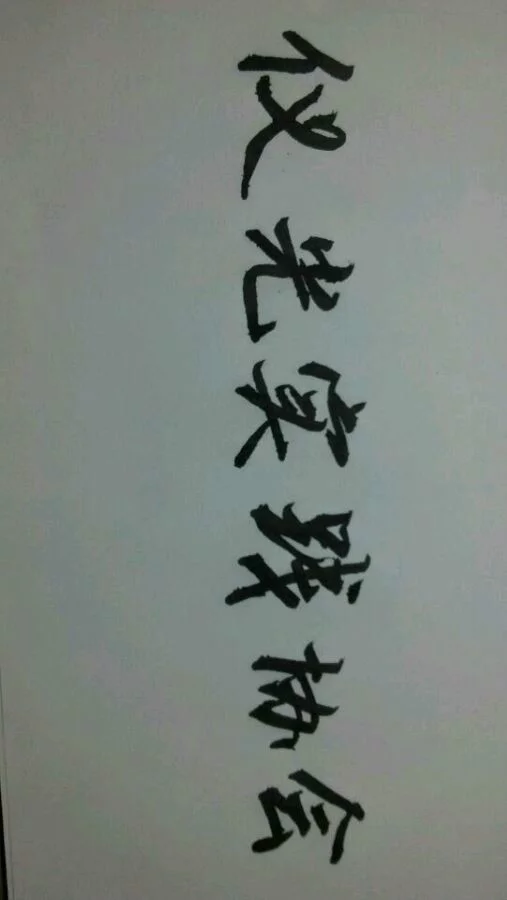 仪光实践协会